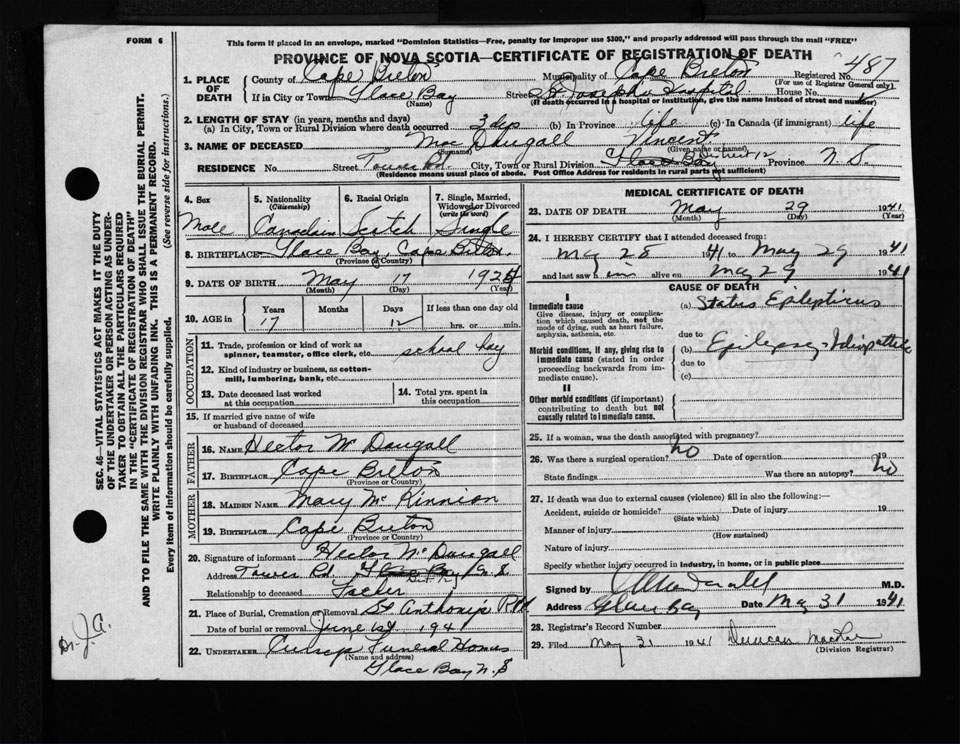 FORM 6
This form if placed in an envelope, marked "Dominion Statistics—Free, penalty for improper use $300," and properly addressed will pass through the mail "FREE"
PROVINCE OF NOVA SCOTIA—CERTIFICATE OF REGISTRATION OF DEATH
487
1. PLACE OF DEATH County of Cape Breton Municipality of Cape Breton Registered No.
(For use of Registrar General only)
If in City or Town Glace Bay Street St. Josephs Hospital House No.
(Name) (If death occurred in a hospital or institution, give the name instead of street and number)
2. LENGTH OF STAY (in years, months and days)
(a) In City, Town or Rural Division where death occurred 3 dys (b) In Province life (c) In Canada (if immigrant) life
3. NAME OF DECEASED Mac Dougall Vincent
(Surname) (Given name or names)
RESIDENCE No. Street Tower Rd. City, Town or Rural Division Glace Bay District 12 Province N. S.
(Residence means usual place of abode. Post Office Address for residents in rural parts not sufficient)
4. Sex
Male
5. Nationality (Citizenship)
Canadain
6. Racial Origin
Scotch
7. Single, Married, Widowed or Divorced (write the word)
Single
8. BIRTHPLACE Glace Bay, Cape Breton.
(Province or Country)
9. DATE OF BIRTH May 17 1924
(Month) (Day) (Year)
10. AGE in Years Months Days If less than one day
17 12 hrs. or min.
OCCUPATION
11. Trade, profession or kind of work as spinner, teamster, office clerk, etc. school boy
12. Kind of industry or business, as cotton-mill, lumbering, bank, etc.
13. Date deceased last worked at this occupation
14. Total yrs. spent in this occupation
15. If married give name of wife or husband of deceased
FATHER
16. NAME Hector Mc Dougall
17. BIRTHPLACE Cape Breton
(Province or Country)
MOTHER
18. MAIDEN NAME Mary Mc Kinnion
19. BIRTHPLACE Cape Breton
(Province or Country)
20. Signature of informant Hector Mc Dougall
Address Tower Rd. Glace Bay N. S
Relationship to deceased Father
21. Place of Burial, Cremation or Removal St Anthony's
Date of burial or removal June 1st 1941
22. UNDERTAKER Funeral Homes
(Name and address)
Glace Bay N. S
MEDICAL CERTIFICATE OF DEATH
23. DATE OF DEATH May 29 1941
(Month) (Day) (Year)
24. I HEREBY CERTIFY that I attended deceased from:
May 28 1941 to May 29 1941
and last saw him alive on May 29 1941
CAUSE OF DEATH
I
Immediate cause
Give disease, injury or complication which caused death, not the mode of dying, such as heart failure, asphyxia, asthenia, etc.
(a) Status Epilepticus
due to
Morbid conditions, if any, giving rise to immediate cause (stated in order proceeding backwards from immediate cause).
(b) Epilepsy - Idiopathic
due to
(c)
II
Other morbid conditions (if important) contributing to death but not causally related to immediate cause.
25. If a woman, was the death associated with pregnancy?
26. Was there a surgical operation? no Date of operation 19
State findings Was there an autopsy? no
27. If death was due to external causes (violence) fill in also the following:—
Accident, suicide or homicide? Date of injury 19
(State which)
Manner of injury
(How sustained)
Nature of injury
Specify whether injury occurred in industry, in home, or in public place
Signed by M.D.
Address Glace Bay Date May 31 1941
28. Registrar's Record Number
29. Filed May 31 1941 Duncan
(Division Registrar)
SEC. 46—VITAL STATISTICS ACT MAKES IT THE DUTY
OF THE UNDERTAKER OR PERSON ACTING AS UNDER-
TAKER TO OBTAIN ALL THE PARTICULARS REQUIRED
IN THE "CERTIFICATE OF REGISTRATION OF DEATH"
AND TO FILE THE SAME WITH THE DIVISION REGISTRAR WHO SHALL ISSUE THE BURIAL PERMIT.
WRITE PLAINLY WITH UNFADING INK. THIS IS A PERMANENT RECORD.
Every item of information should be carefully supplied. (See reverse side for instructions).
Dr. J. A.